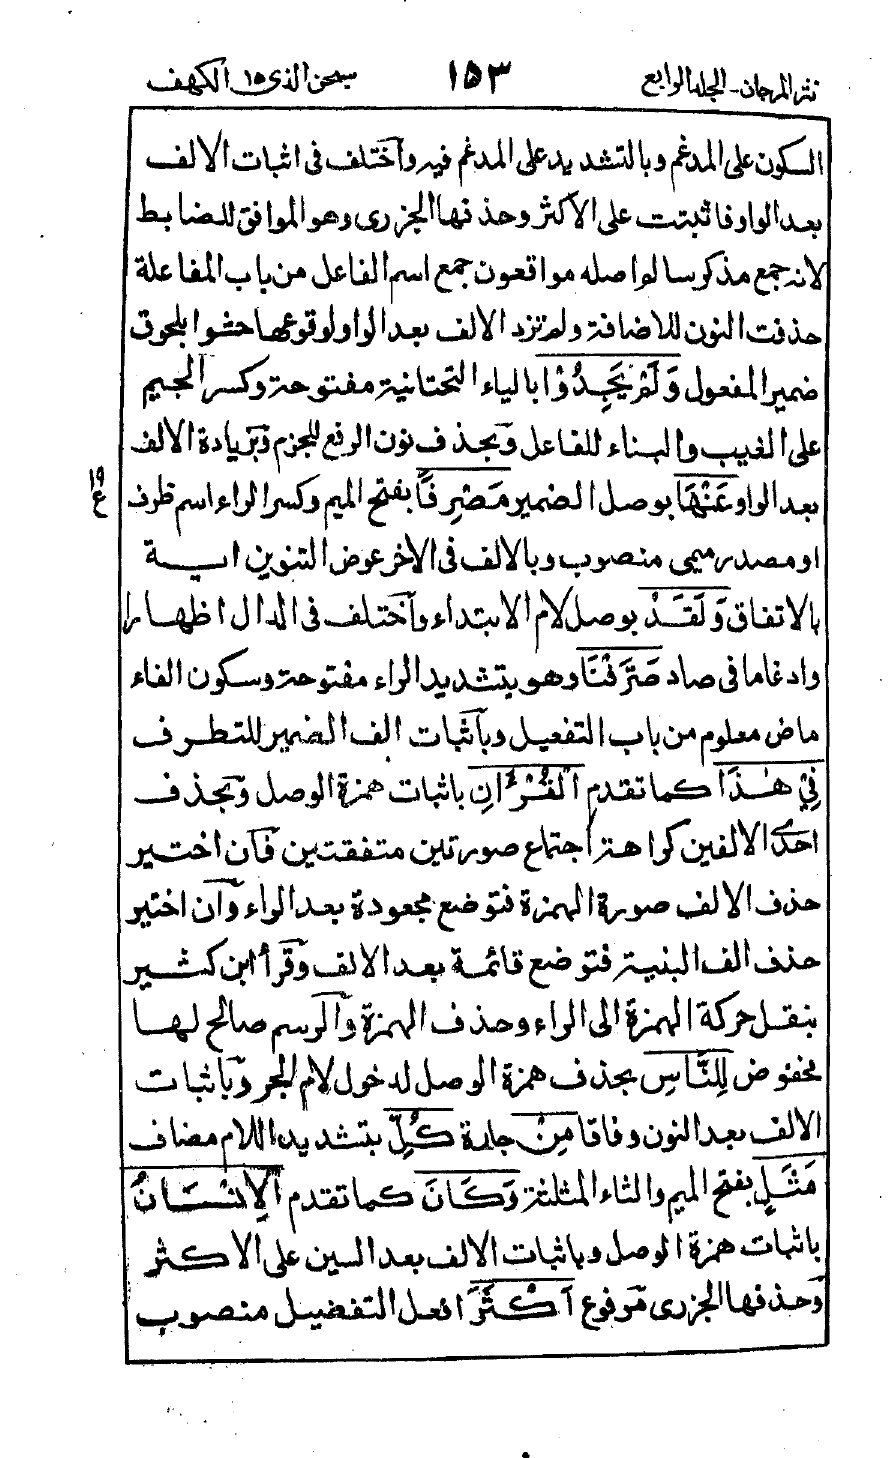 نثر المرجان - الجلد الرابع
١٥٣
سبحن الذى ١٥ الكهف
السكون على المدغم وبالتشديد على المدغم فيه وآختلف فى اثبات الالف
بعد الواو فاثبتت على الاكثر وحذفها الجزرى وهو الموافق للضابط
لانه جمع مذكر سالم واصله مواقعون جمع اسم الفاعل من باب المفاعلة
حذفت النون للاضافة ولم تزد الالف بعد الواو لوقوعها حشوا بلحوق
ضمير المفعول وَلَمْ يَجِدُوْا بالياء التحتانية مفتوحة وكسر الجيم
على الغيب والبناء للفاعل وبحذف نون الرفع للجزم وبزيادة الالف
بعد الواو عَنْهَا بوصل الضمير مَصْرِفًا بفتح الميم وكسر الراء اسم ظرف
١٩
ع
او مصدر ميمى منصوب وبالالف فى الاخر عوض التنوين اية
بالاتفاق وَلَقَدْ بوصل لام الابتداء وآختلف فى الدال اظهارا
وادغاما فى صاد صَرَّفْنَا وهو بتشديد الراء مفتوحة وسكون الفاء
ماض معلوم من باب التفعيل وبآثبات الف الضمير للتطرف
فِيْ هٰذَا كما تقدم الْقُرْءَانِ باثبات همزة الوصل وبحذف
احدى الالفين كراهة اجتماع صورتين متفقتين فآن اختير
حذف الالف صورة الهمزة فتوضع مجعودة بعد الراء وآن اختير
حذف الف البنية فتوضع قائمة بعد الالف وقرأ ابن كثير
بنقل حركة الهمزة الى الراء وحذف الهمزة وآلرسم صالح لها
مخفوض لِلنَّاسِ بحذف همزة الوصل لدخول لام الجر وبآثبات
الالف بعد النون وفاقا مِنْ جارة كُلِّ بتشديد اللام مضاف
مَثَلٍ بفتح الميم والثاء المثلثة وَكَانَ كما تقدم الْاِنْسَانُ
باثبات همزة الوصل وباثبات الالف بعد السين على الاكثر
وحذفها الجزرى مرفوع اَكْثَرَ افعل التفضيل منصوب